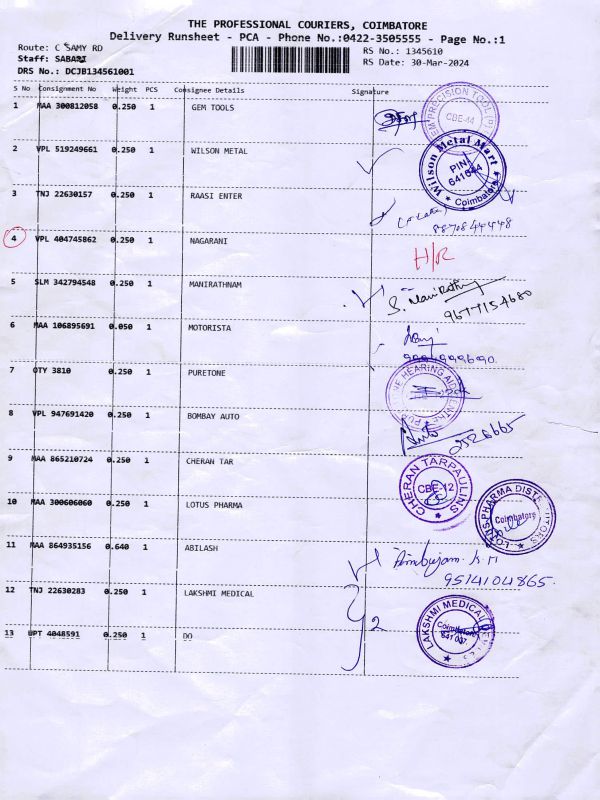 THE PROFESSIONAL COURIERS, COIMBATORE
Delivery Runsheet - PCA - Phone No.:0422-3505555 - Page No.:1
Route: C SAMY RD
RS No.: 1345610
Staff: SABARI
RS Date: 30-Mar-2024
DRS No.: DCJB134561001
S No Consignment No Weight PCS Consignee Details Signature
1 MAA 300812058 0.250 1 GEM TOOLS
CBE-44
2 VPL 519249661 0.250 1 WILSON METAL
Wilson Metal Mart
PIN
641044
Coimbatore
3 TNJ 22630157 0.250 1 RAASI ENTER
8870844448
4 VPL 404745862 0.250 1 NAGARANI
H/R
5 SLM 342794548 0.250 1 MANIRATHNAM
S. Manirathnam
9677154680
6 MAA 106895691 0.050 1 MOTORISTA
7 OTY 3810 0.250 1 PURETONE
HEARING AID
8 VPL 947691420 0.250 1 BOMBAY AUTO
2526665
9 MAA 865210724 0.250 1 CHERAN TAR
CHERAN TARPAULINS
CBE-12
10 MAA 300606060 0.250 1 LOTUS PHARMA
LOTUS PHARMA DISTRIBUTORS
Coimbatore
11 MAA 864935156 0.640 1 ABILASH
Ambujam K.M
9514104865.
12 TNJ 22630283 0.250 1 LAKSHMI MEDICAL
2
LAKSHMI MEDICAL
Coimbatore
13 UPT 4048591 0.250 1 DO